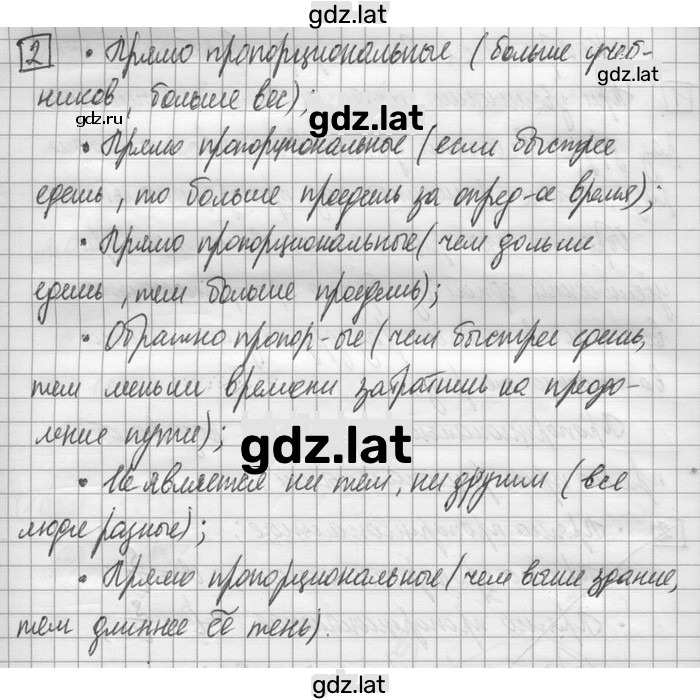 gdz.lat
2 • Прямо пропорциональные (больше учеб-
ников, больше вес);
gdz.ru
gdz.lat
• Прямо пропорциональные (если быстрее
едешь, то больше проедешь за опред-ое время);
• Прямо пропорциональные (чем дольше
едешь, тем больше проедешь);
• Обратно пропор-ые (чем быстрее едешь,
тем меньше времени затратишь на преодо-
ление пути);
gdz.lat
• Не является ни тем, ни другим (все
люди разные);
• Прямо пропорциональные (чем выше здание,
тем длиннее её тень).
gdz.lat